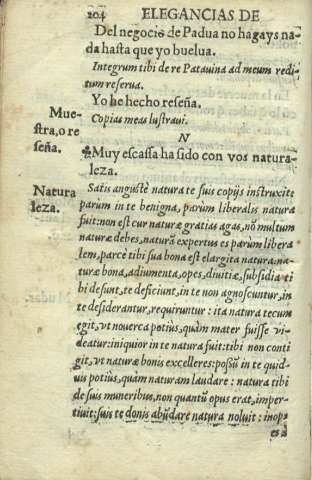 204 ELEGANCIAS DE
Del negocio de Padua no hagays na-
da hasta que yo buelua.
Integrum tibi de re Patauina ad meum redi-
tum reserua.
Yo he hecho reseña.
Copias meas lustraui.
N
Mue-
stra, o re
seña.
Muy escassa ha sido con vos natura-
leza.
Natura
leza.
Satis angustè natura te suis copijs instruxit:
parùm in te benigna, parùm liberalis natura
fuit: non est cur naturæ gratias agas, nõ multum
naturæ debes, naturã expertus es parùm libera
lem, parcè tibi sua bona est elargita natura: na-
turæ bona, adiumenta, opes, diuitiæ, subsidia ti
bi desunt, te deficiunt, in te non agnoscuntur, in
te desiderantur, requiruntur: ita natura tecum
egit, vt nouerca potiùs, quàm mater fuisse vi-
deatur: iniquior in te natura fuit: tibi non conti
git, vt naturæ bonis excelleres: possũ in te quid-
uis potiùs, quàm naturam laudare: natura tibi
de suis muneribus, non quantũ opus erat, imper-
tiuit: suis te donis abũdare natura noluit: inops